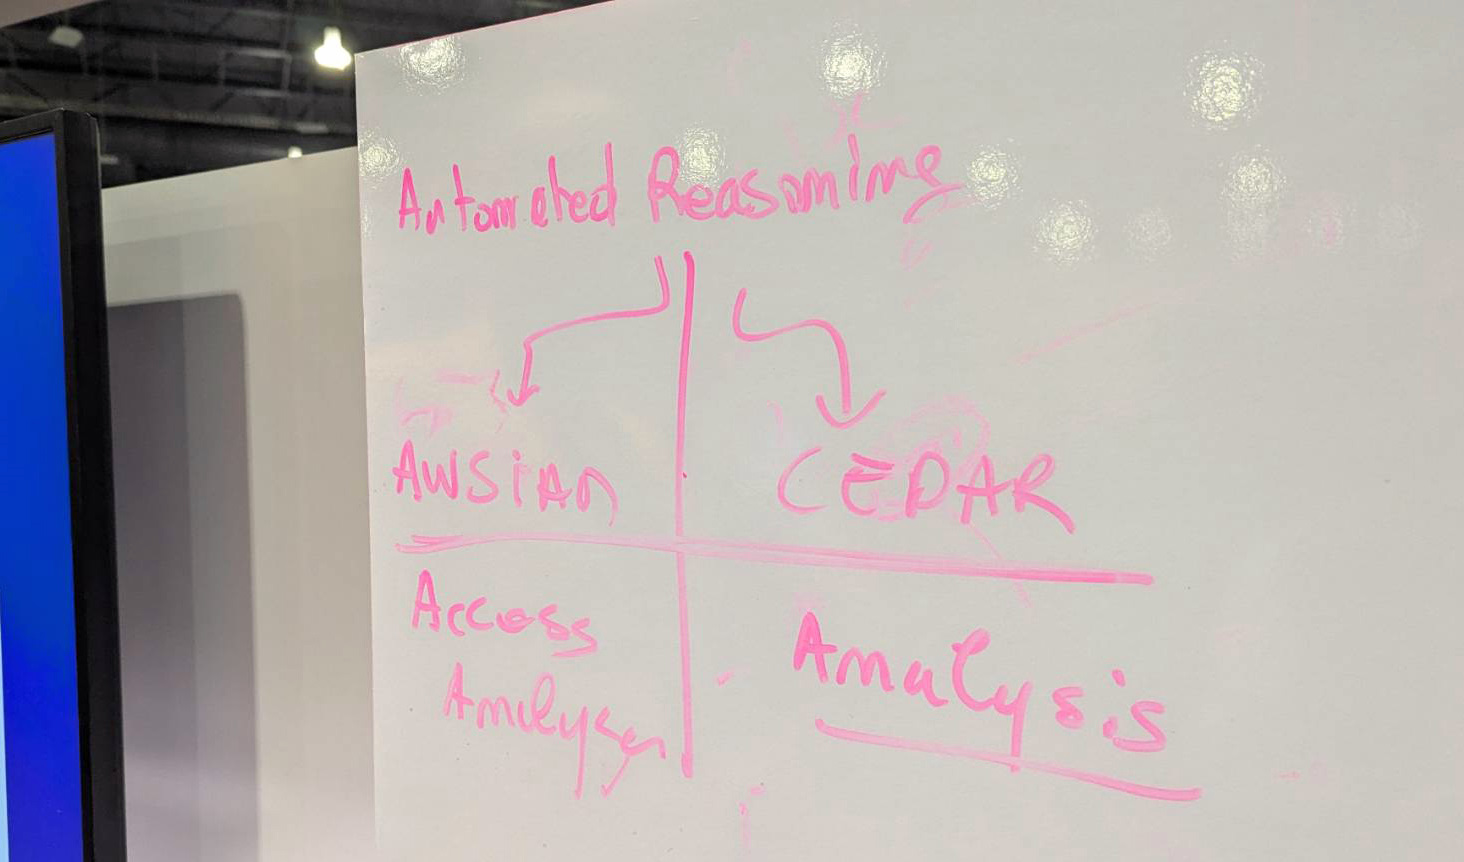 Automated Reasoning
AWS IAM
CEDAR
Access
Analyzer
Analysis